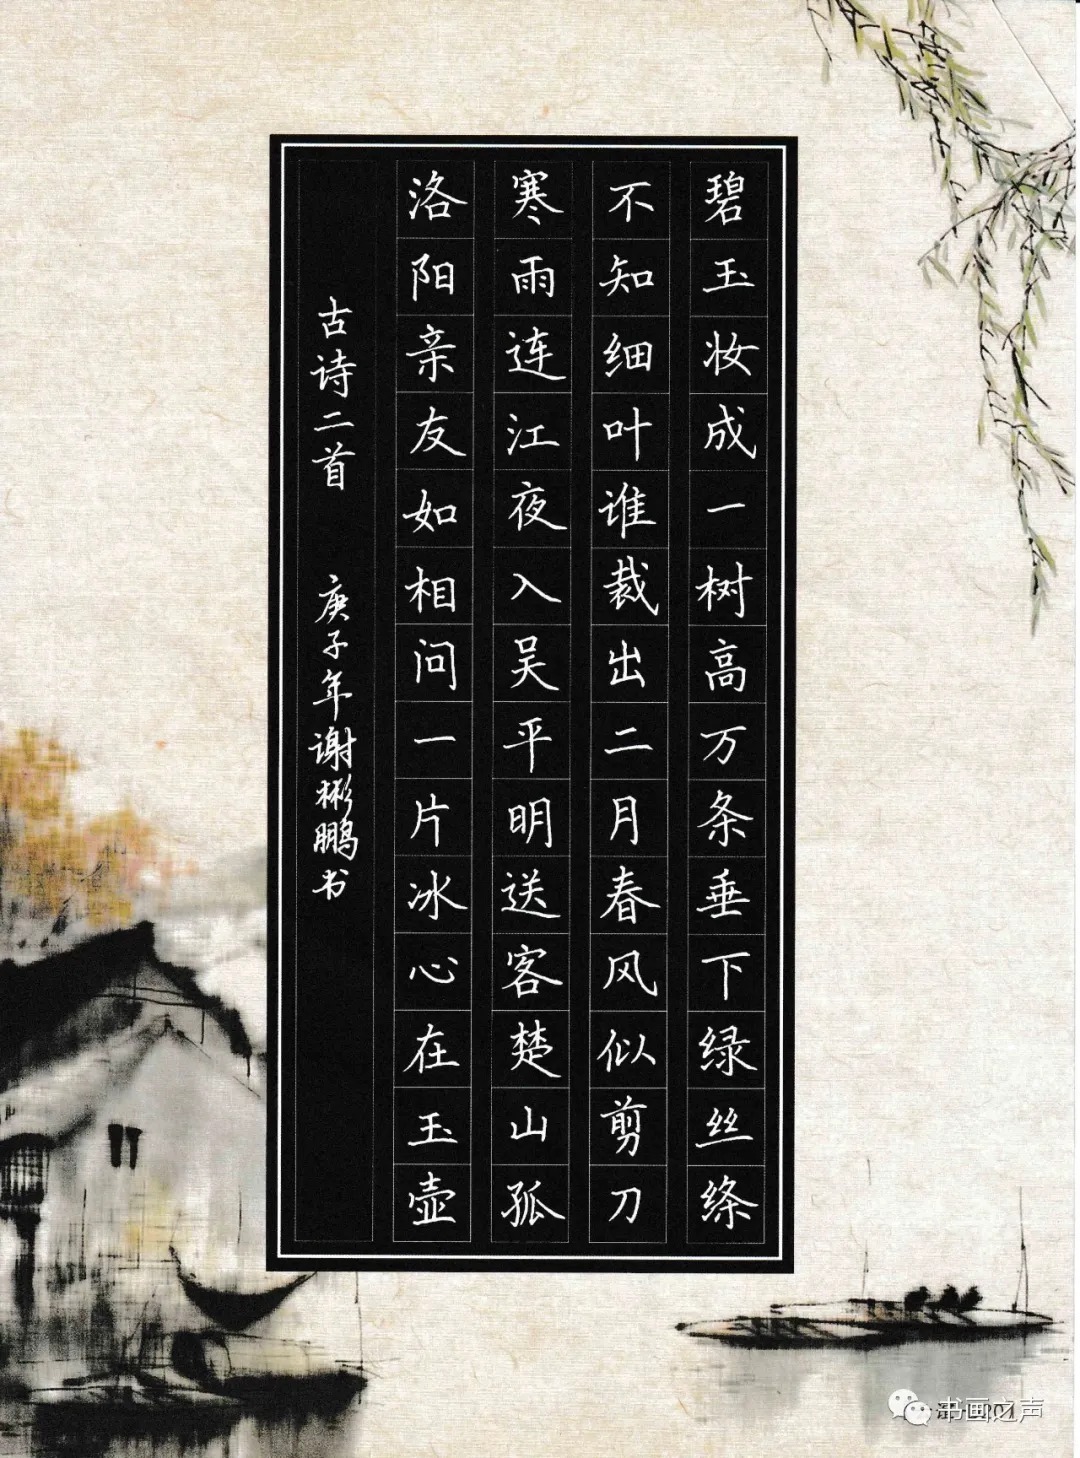 碧玉妆成一树高万条垂下绿丝绦
不知细叶谁裁出二月春风似剪刀
寒雨连江夜入吴平明送客楚山孤
洛阳亲友如相问一片冰心在玉壶
古诗二首 庚子年谢彬鹏书
书画之声